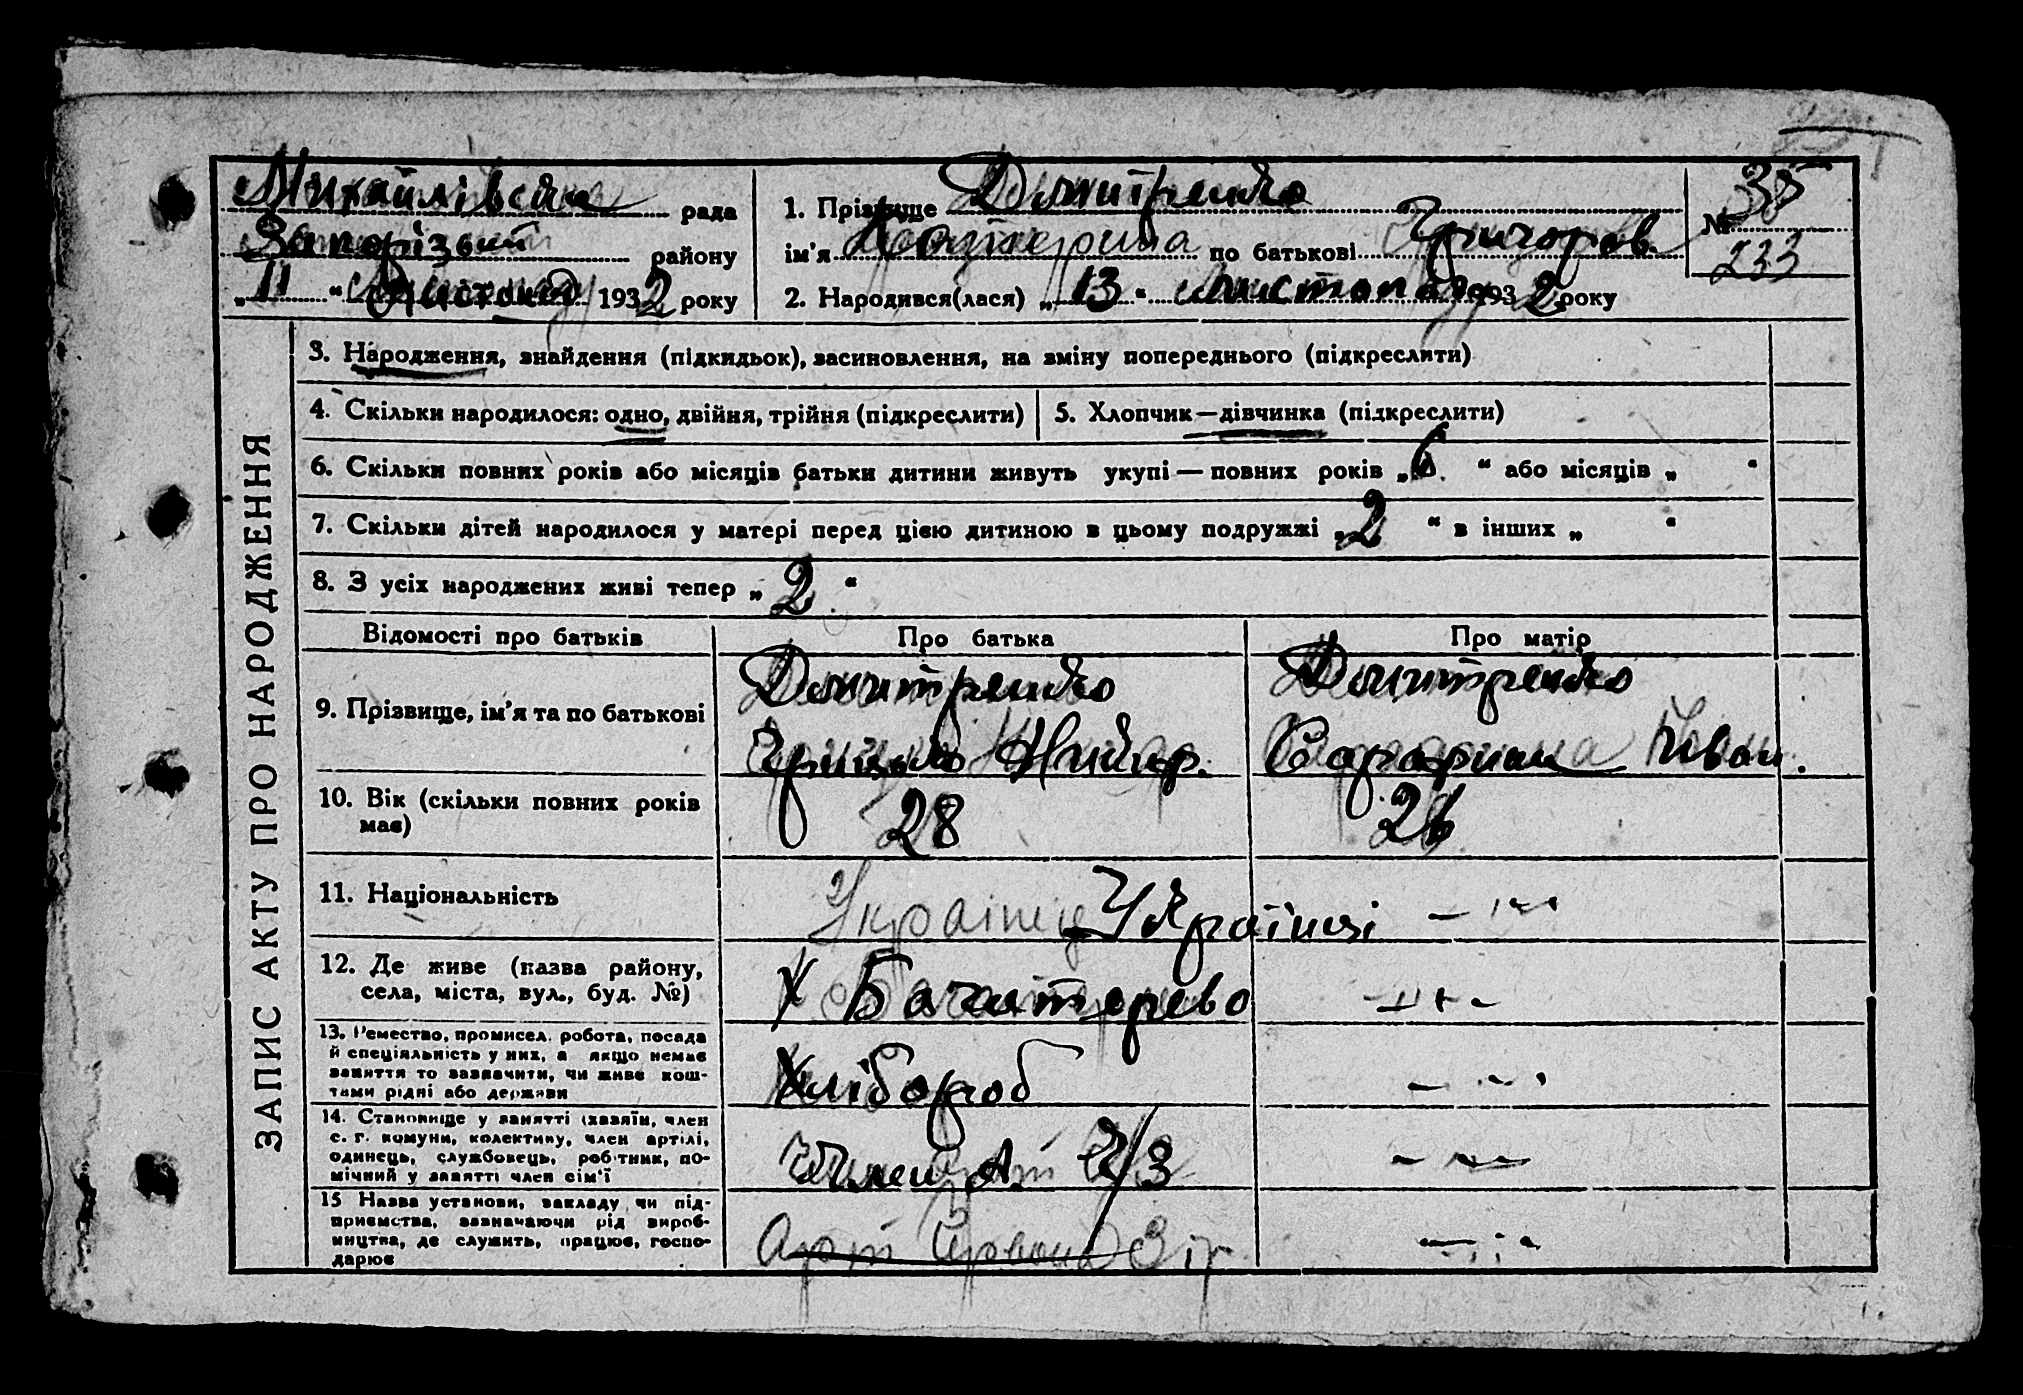 Михайлівська рада
Запорізький району
„11“ Листопад 1932 року
1. Прізвище Дмитренко
ім'я Катерина по батькові Григоров.
2. Народився(лася) „13“ листопада 1932 року
№ 35
233
ЗАПИС АКТУ ПРО НАРОДЖЕННЯ
3. Народження, знайдення (підкидьок), засиновлення, на зміну попереднього (підкреслити)
4. Скільки народилося: одно, двійня, трійня (підкреслити)
5. Хлопчик—дівчинка (підкреслити)
6. Скільки повних років або місяців батьки дитини живуть укупі — повних років „6“ або місяців „ “
7. Скільки дітей народилося у матері перед цією дитиною в цьому подружжі „2“ в інших „ “
8. З усіх народжених живі тепер „2“
Відомості про батьків Про батька Про матір
9. Прізвище, ім'я та по батькові
Дмитренко
Грицько
Дмитренко
Иван.
10. Вік (скільки повних років має)
28
26
11. Національність
Українці
12. Де живе (назва району, села, міста, вул., буд. №)
Х Богатирево
13. Ремество, промисел, робота, посада
й спеціяльність у них, а якщо немає
заняття то зазначити, чи живе кош-
тами рідні або держави
Хлібороб
14. Становище у занятті (хазяїн, член
с. г. комуни, колективу, член артілі,
одинець, службовець, робітник, по-
мічний у занятті член сім'ї
Член А. Ч/З
15 Назва установи, закладу чи під-
приємства, зазначаючи рід вироб-
ництва, де служить, працює, госпо-
дарює
Арт Червона Зір